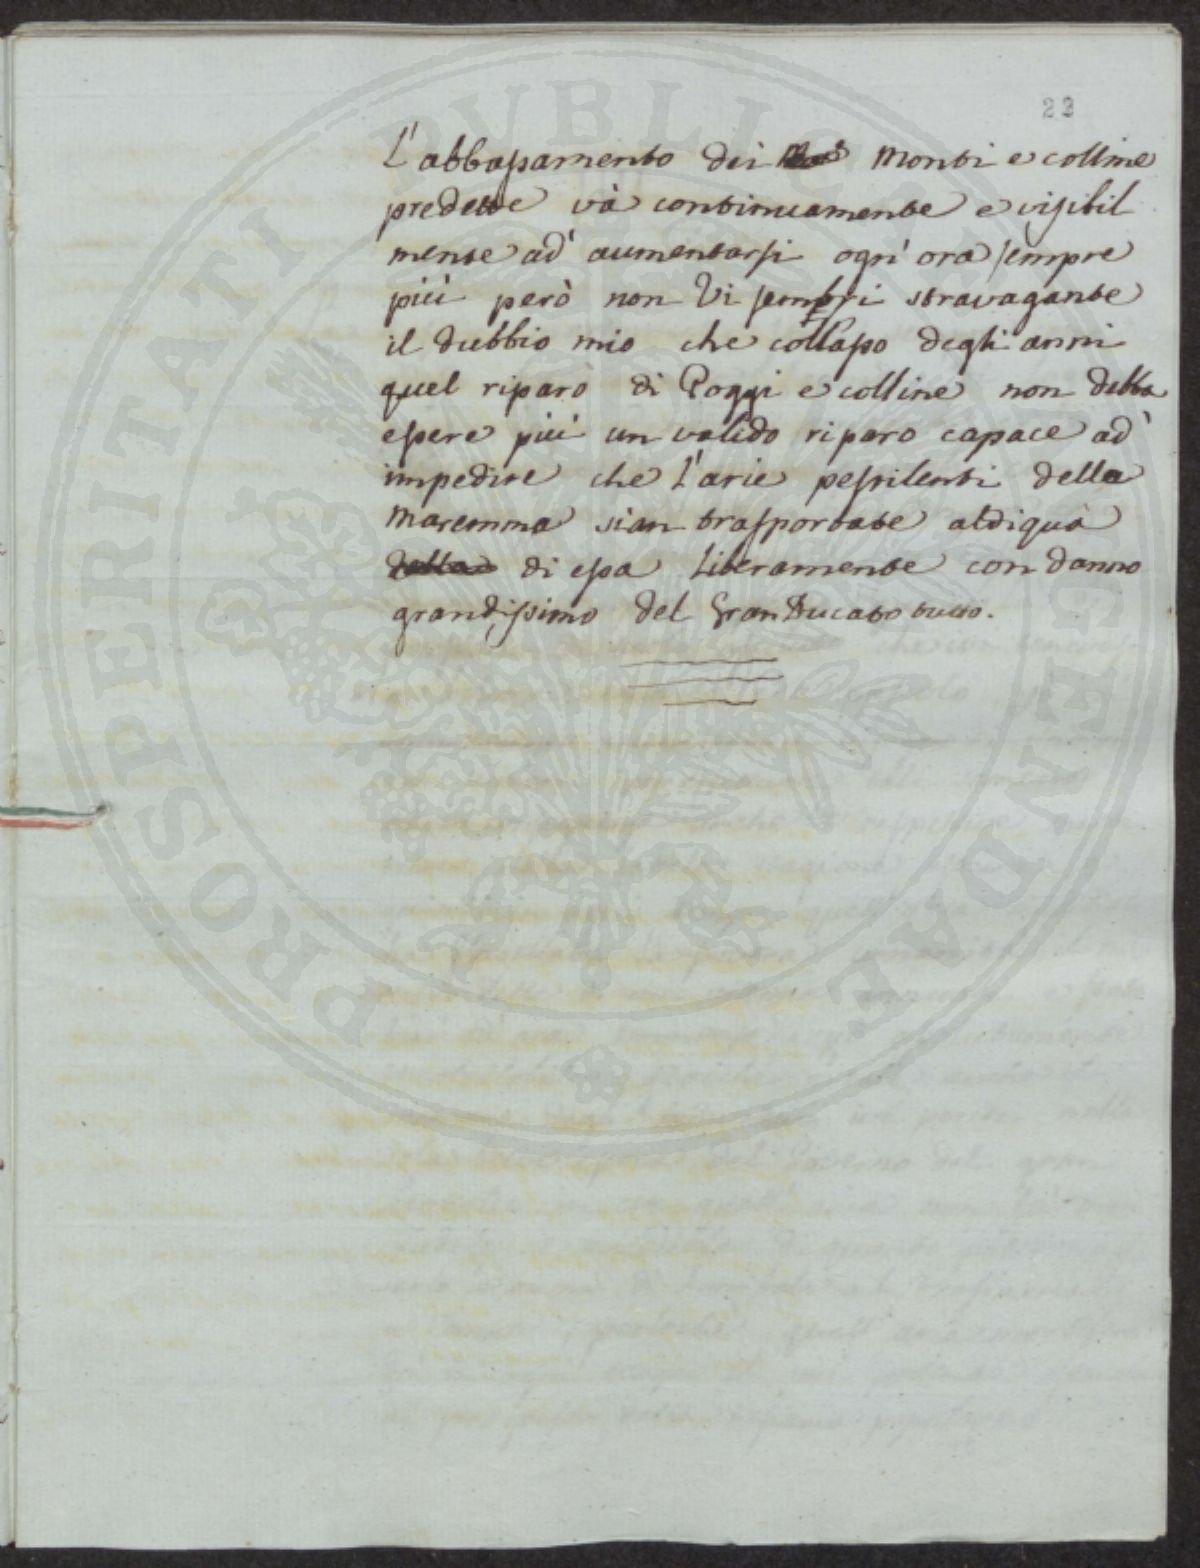 22
L'abbassamento dei Monti e colline
predette và continuamente e visibil
mente ad' aumentarsi ogn'ora sempre
più però non Vi sembri stravagante
il dubbio mio che collasso degli anni
quel riparo di Poggi e colline non debba
essere più un valido riparo capace ad'
impedire che l'arie pestilenti della
Maremma sian trasportate aldiquà
della di essa liberamente con danno
grandissimo del Gran Ducato tutto.
PROSPERITATI PVBLICAE AVGENDAE